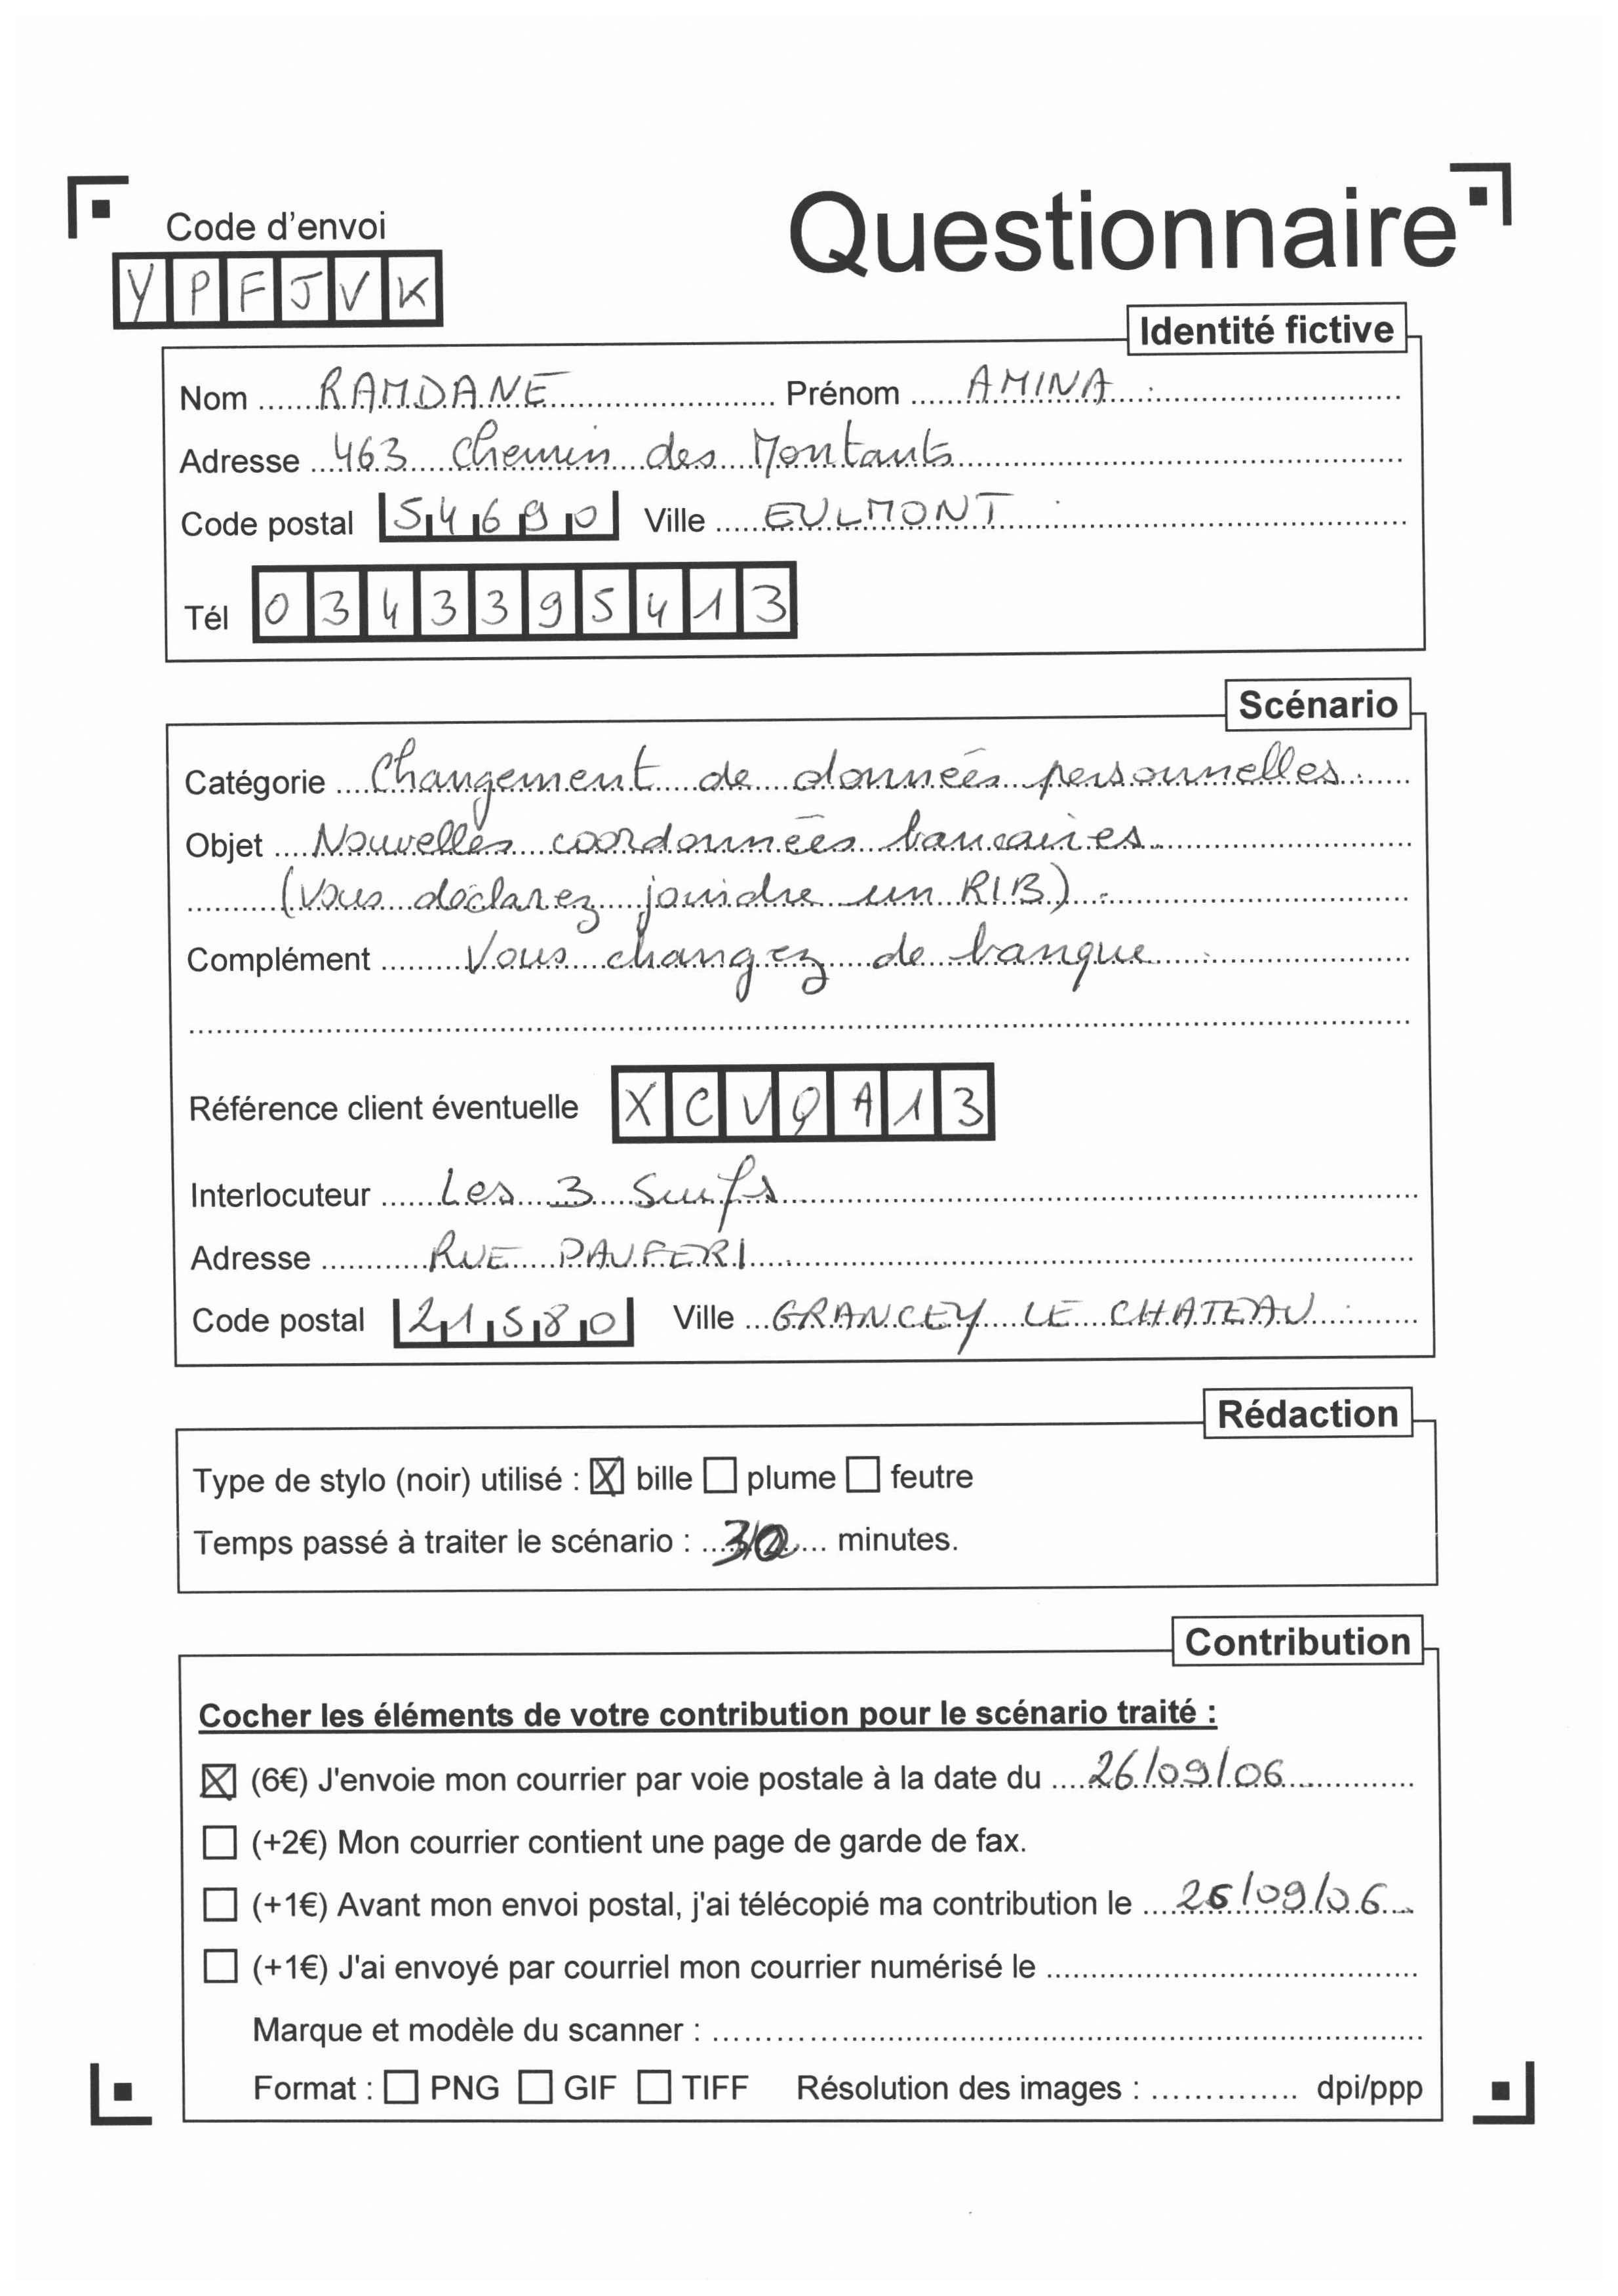 Code d'envoi
Questionnaire
Y P F J V K
Identité fictive
Nom ...... RAMDANE ...... Prénom ...... AMINA ......
Adresse ... 463 Chemin des Montants ......
Code postal 54690 Ville ..... EULMONT ......
Tél 0 3 4 3 3 9 5 4 1 3
Scénario
Catégorie .... Changement de données personnelles ......
Objet .... Nouvelles coordonnées bancaires ......
...... (Vous déclarez joindre un RIB) ......
Complément ...... Vous changez de banque ......
Référence client éventuelle X C V Q A 1 3
Interlocuteur ...... Les 3 Surfs ......
Adresse ...... RUE PAUFERI ......
Code postal 21580 Ville ... GRANCEY LE CHATEAU ......
Rédaction
Type de stylo (noir) utilisé : ☒ bille ☐ plume ☐ feutre
Temps passé à traiter le scénario : ... 30 ... minutes.
Contribution
Cocher les éléments de votre contribution pour le scénario traité :
☒ (6€) J'envoie mon courrier par voie postale à la date du .... 26/09/06 ......
☐ (+2€) Mon courrier contient une page de garde de fax.
☐ (+1€) Avant mon envoi postal, j'ai télécopié ma contribution le .... 26/09/06 ...
☐ (+1€) J'ai envoyé par courriel mon courrier numérisé le ......
Marque et modèle du scanner : ......
Format : ☐ PNG ☐ GIF ☐ TIFF Résolution des images : ...... dpi/ppp